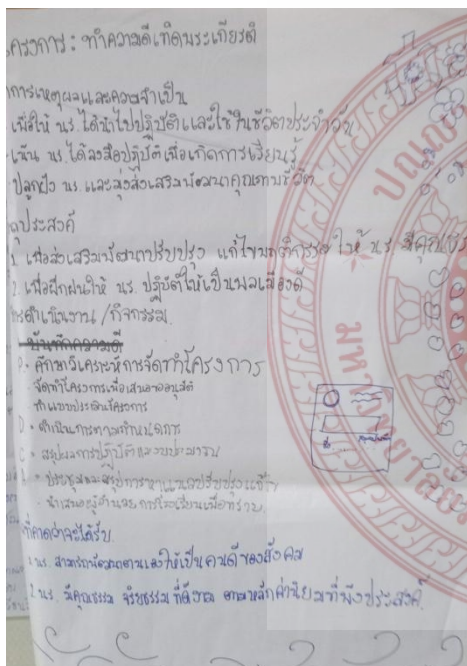 โครงการ : ทำความดีเทิดพระเกียรติ
การเหตุผลและความจำเป็น
เพื่อให้ นร. ได้นำไปปฏิบัติและใช้ในชีวิตประจำวัน
เน้น นร. ได้ลงมือปฏิบัติเพื่อเกิดการเรียนรู้
ปลูกฝัง นร. และมุ่งส่งเสริมพัฒนาคุณภาพชีวิต
ถุประสงค์
1. เพื่อส่งเสริมพัฒนาปรับปรุง แก้ไขพฤติกรรม ให้ นร. มีคุณ
2. เพื่อฝึกฝนให้ นร. ปฏิบัติให้เป็นพลเมืองดี
ารดำเนินงาน / กิจกรรม
บันทึกความดี
P - ศึกษาวิเคราะห์การจัดทำโครงการ
จัดทำโครงการเพื่อเสนอขออนุมัติ
ทำแบบประเมินโครงการ
D - ดำเนินการตาม
C - สรุปผลการปฏิบัติและงบประมาณ
ประชุมและสรุปการหาแนวปรับปรุงแก้ไข
- นำเสนอผู้อำนวยการโรงเรียนเพื่อทราบ
ที่คาดว่าจะได้รับ
1. นร. สามารถพัฒนาตนเองให้เป็นคนดีของสังคม
2. นร. มีคุณธรรม จริยธรรม ที่ดีงาม ตามหลักค่านิยมที่พึงประสงค์
ชื่อ